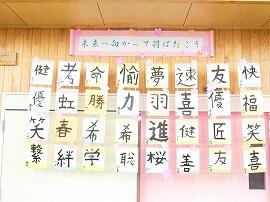 未来へ向かって羽ばたこう
健 考 命 愉 夢 速 友 快
優 虹 勝 力 羽 喜 優 福
笑 春 希 希 進 健 匠 笑
繋 絆 学 聡 桜 善 友 喜